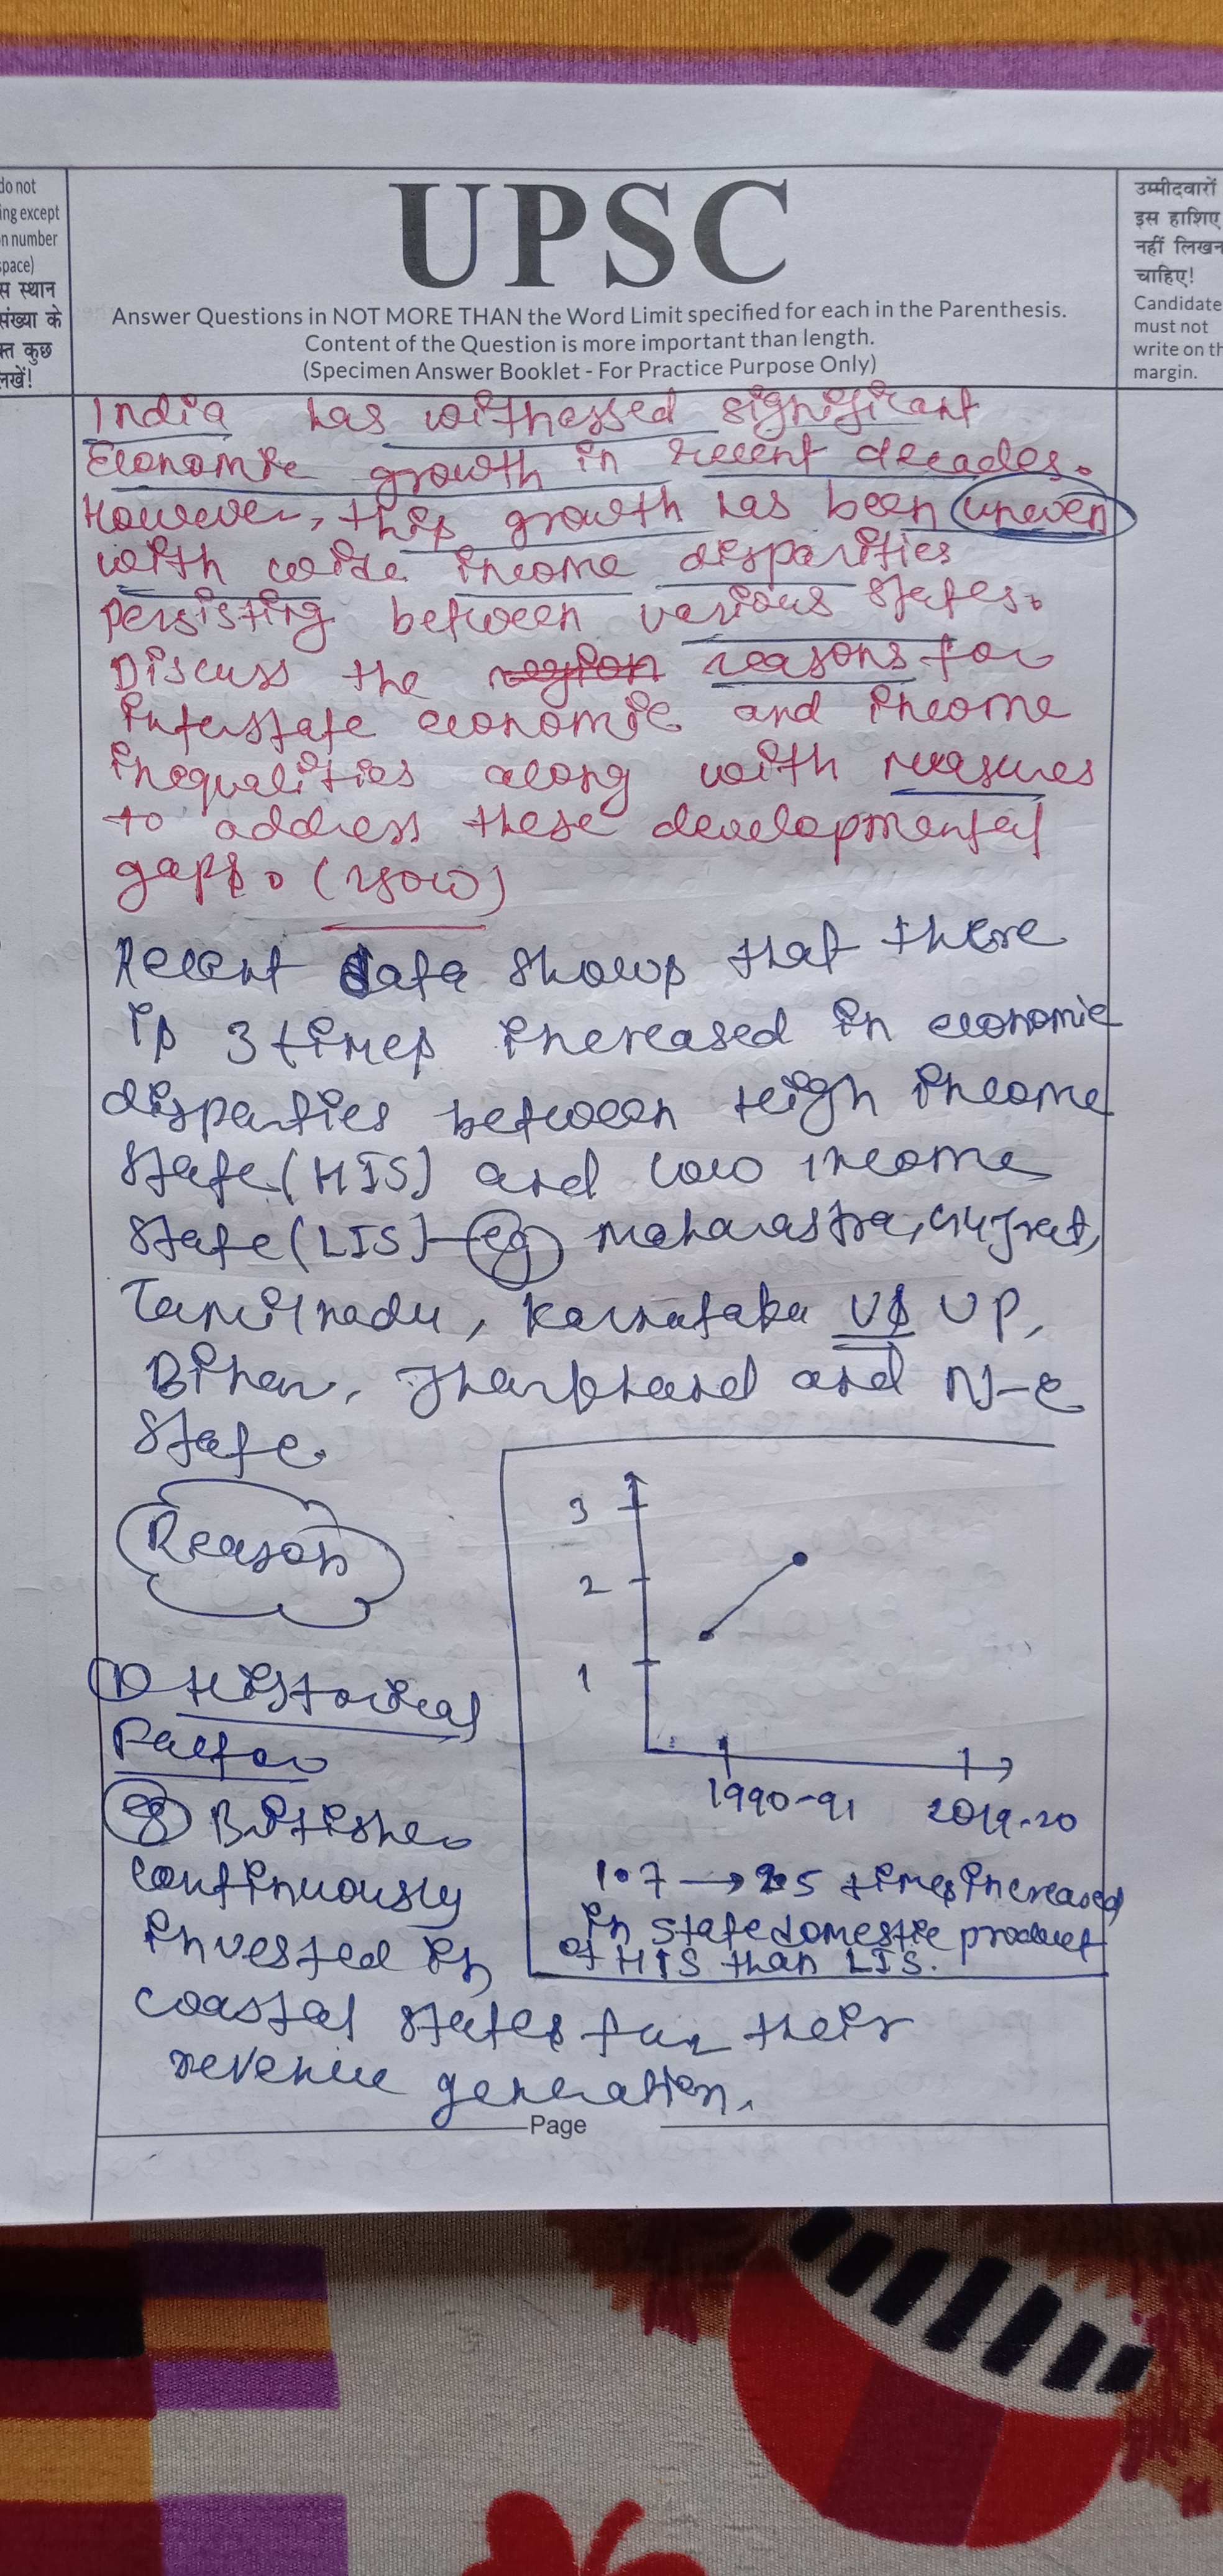 do not
ing except
n number
pace)
स स्थान
संख्या के
क्त कुछ
लखें!
UPSC
Answer Questions in NOT MORE THAN the Word Limit specified for each in the Parenthesis.
Content of the Question is more important than length.
(Specimen Answer Booklet - For Practice Purpose Only)
उम्मीदवारों
इस हाशिए
नहीं लिखन
चाहिए!
Candidate
must not
write on th
margin.
India has witnessed significant
Economic growth in recent decades.
However, this growth has been uneven
with wide income disparities
persisting between various states.
Discuss the region reasons for
interstate economic and income
inequalities along with measures
to address these developmental
gaps.
Recent data shows that there
is 3 times increased in economic
disparties between High income
state (HIS) and low income
state (LIS) eg Maharastra, Gujrat,
Tamilnadu, Karnataka vs UP,
Bihar, Jharkhand and N-E
state.
Reason
3
2
1
1990-91 2019-20
1.7 → 2.5 times increased
in state domestic product
of HIS than LIS.
① Historical
Factor
eg Britisher
continuously
invested in
coastal states for their
revenue generation.
Page